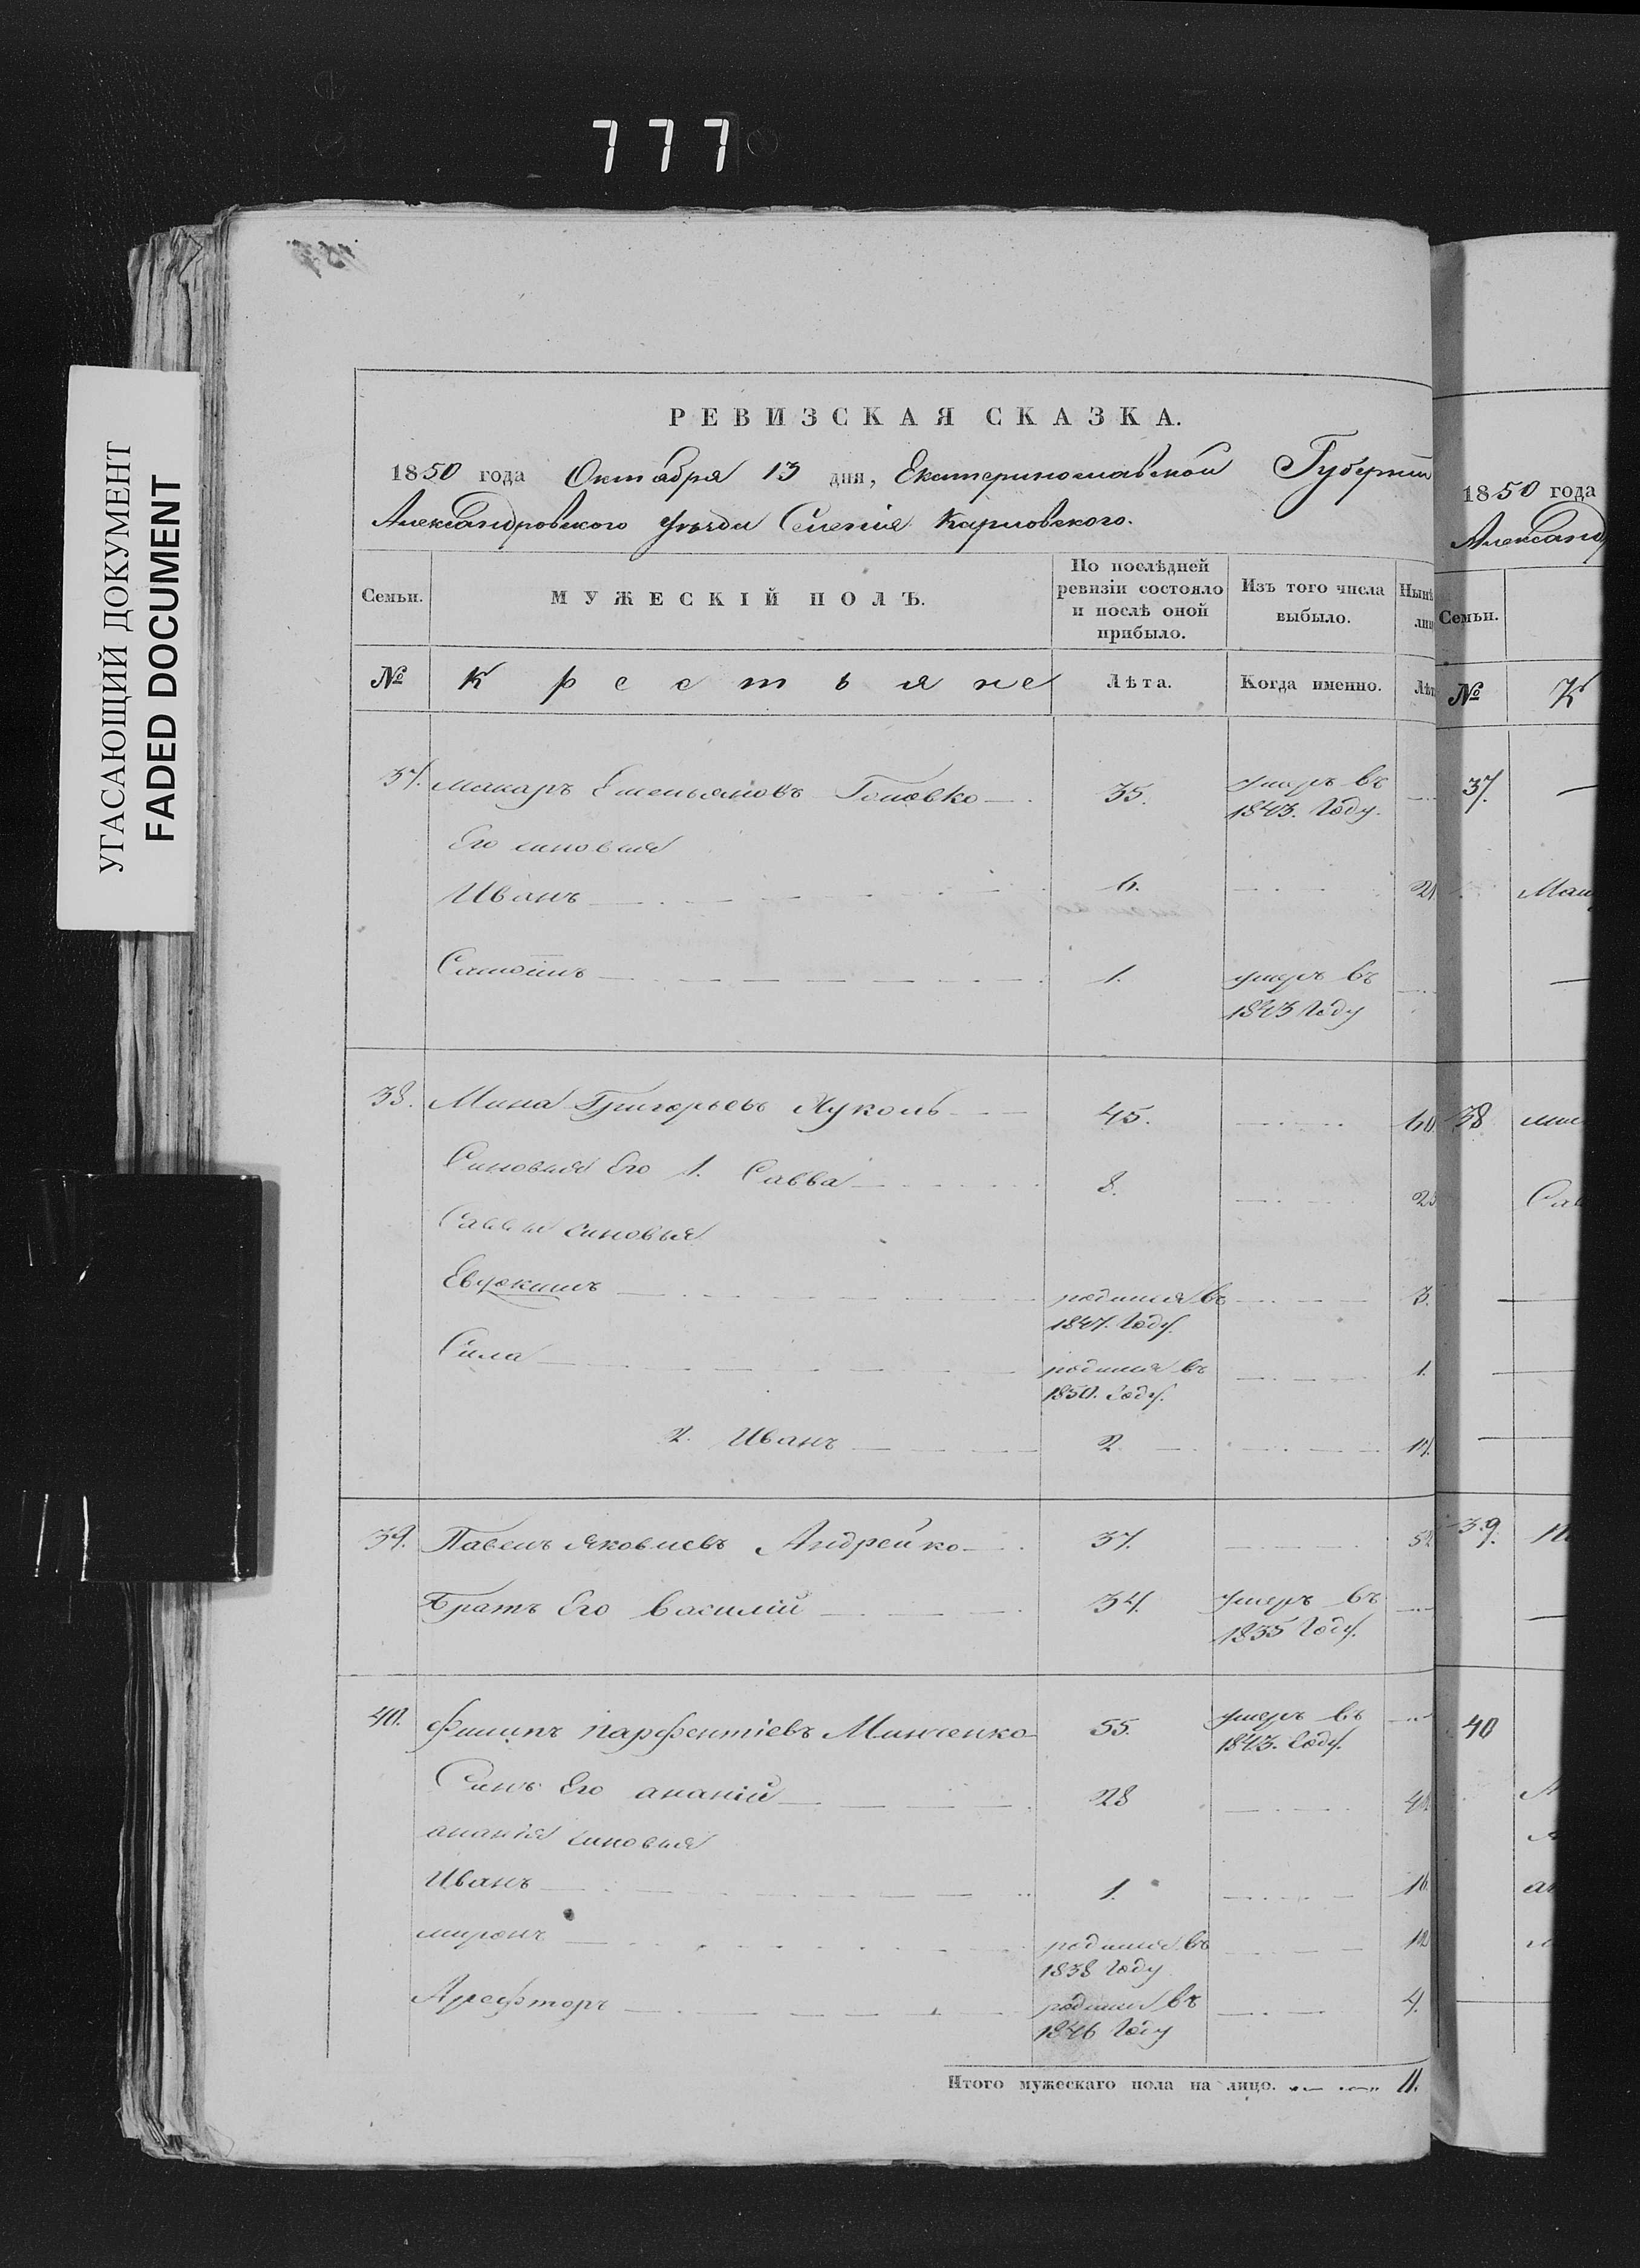 777
УГАСАЮЩИЙ ДОКУМЕНТ
FADED DOCUMENT
РЕВИЗСКАЯ СКАЗКА.
1850 года Октября 13 дня, Екатеринославской Губернии
Александровского уезда Селенія Карловского.
Семьи. МУЖЕСКІЙ ПОЛЪ. По послѣдней ревизіи состояло и послѣ оной прибыло. Изъ того числа выбыло. Нынѣ
№ Крестьяне Лѣта. Когда именно. Лѣт
37. Макаръ Емельяновъ Головко 35. умеръ въ
1843. Году.
Его синовья
Иванъ 6. 21
1. умеръ въ
1843 Году
38. Мина Григорьевъ Куколь 45. 60
Синовья Его 1. Савва 8. 23
Саввы синовья
Евдокимъ родился въ 3.
1847. Году.
Сила родился въ 1.
1850. Году.
2. Иванъ 2 17.
39. Павелъ Яковлевъ Андрейко 37. 52
Братъ Его Василій 34. умеръ въ
1835 Году.
40. Филипъ Парфентіевъ Минченко 55. умеръ въ
1843. Году.
Синъ Его ананій 28 43
ананія синовья
Иванъ 1. 16
миронъ родился въ 12
1838 Году
родился въ 4.
1846 Году
Итого мужескаго пола на лицо. 11.
1850 года
Александ
Семьи.
№ К
37.
38
Сав
39.
40